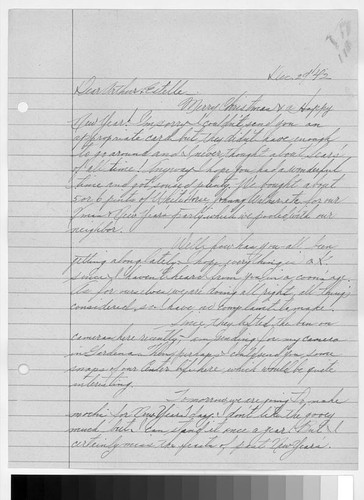 Dec. 29, '43
Dear Arthur & Estella,
Merry Christmas & a Happy
New Year! I'm sorry I couldn't send you an
appropriate card but they didn't have enough
to go around and I never thought about
of old time! Anyway I hope you had a wonderful
time and got soused plenty. We bought about
5 or 6 pints of
Xmas & New Years party which we pooled with our
neighbor.
Well, how has you all been
getting along lately. I hope everything is O.K.
since I haven't heard from you in a coming
As for ourselves we are doing all right, all things
considered, so I have no complaint to make.
Since they lifted the ban on
cameras here recently I am sending for my camera
in Gardena. Then perhaps I can send you some
snaps of our center life here which would be quite
interesting.
Tomorrow we are going to make
mochi for New Years day. I don't like the gooey
much but I can stand it once a year. But I
certainly miss the feasts of past New Years.